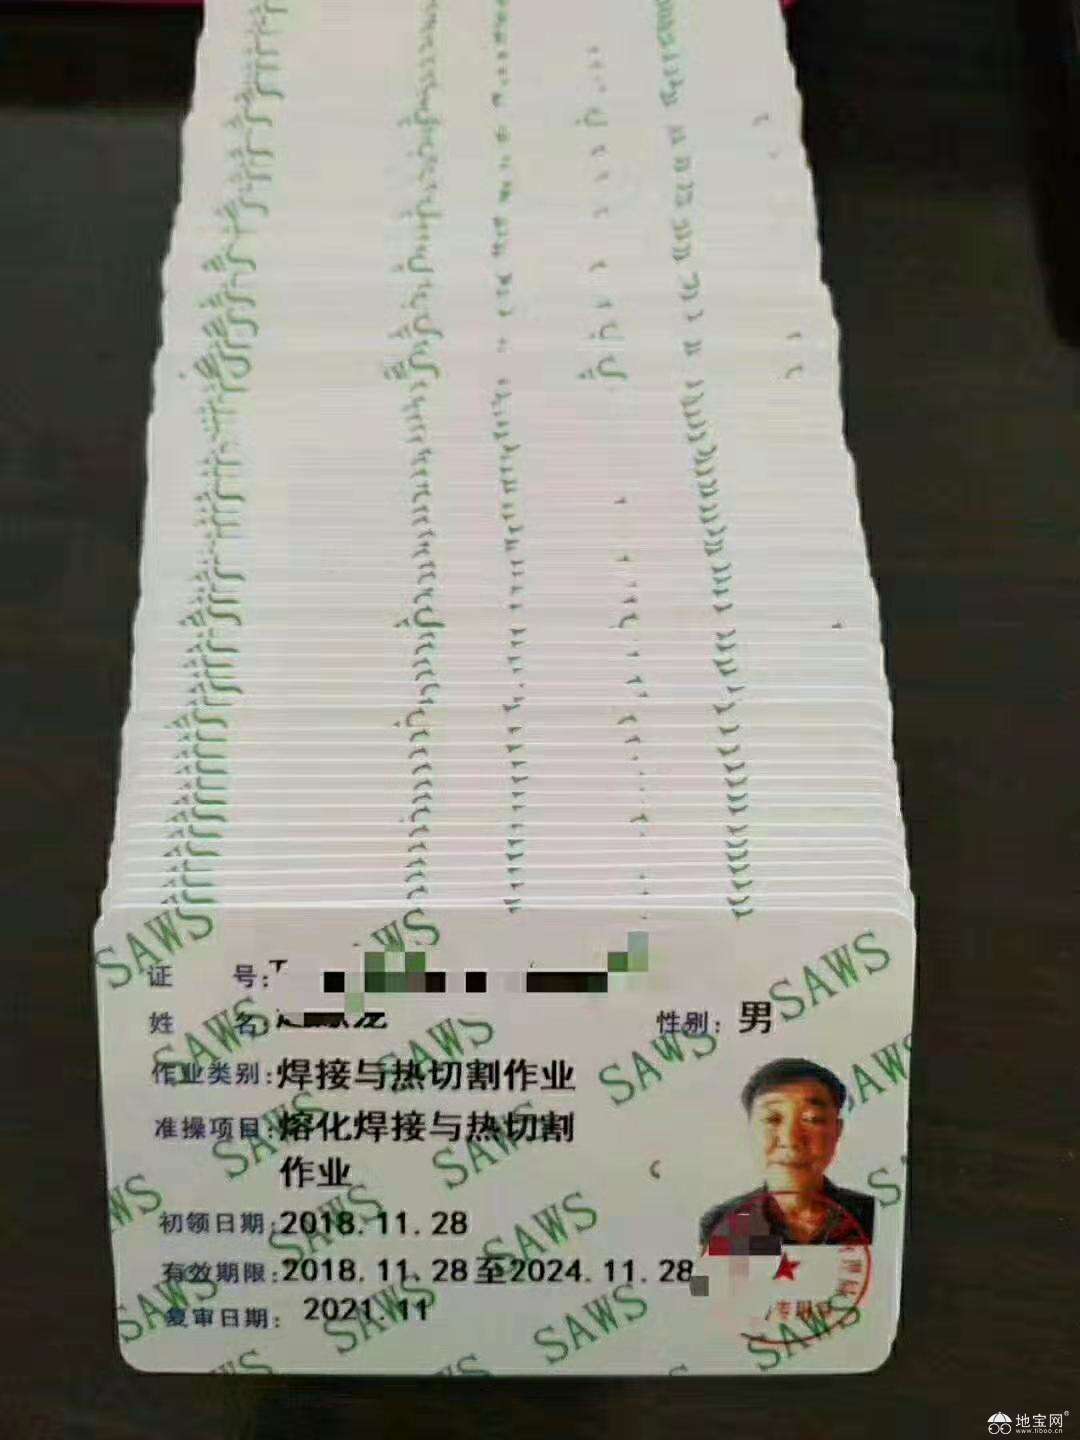 证 号:
姓 名:
性别: 男
作业类别: 焊接与热切割作业
准操项目: 熔化焊接与热切割
作业
初领日期: 2018.11.28
有效期限: 2018.11.28至2024.11.28
复审日期: 2021.11
SAWS
SAWS
SAWS
SAWS
SAWS
SAWS
SAWS
SAWS
SAWS
SAWS
SAWS
SAWS
地宝网®
www.tiboo.cn